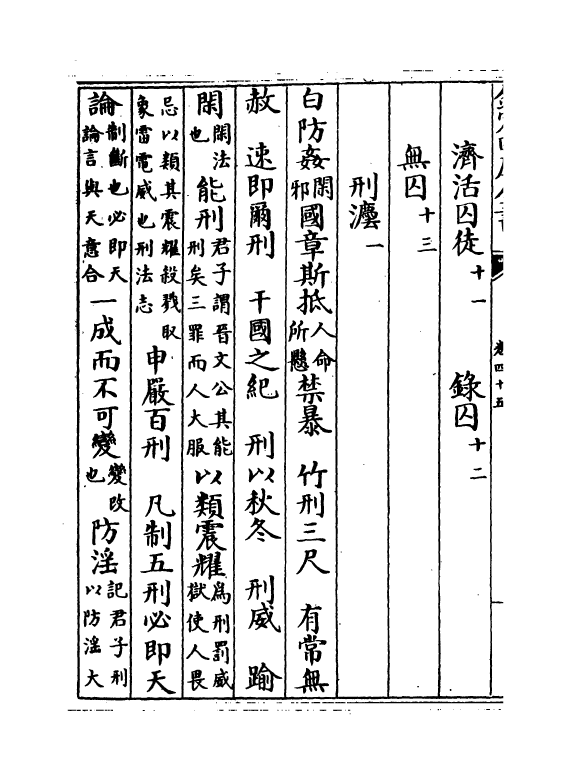 卷四十五
濟活囚徒十一 錄囚十二
無囚十三
刑灋一
白防姦閑邪國章斯抵人命所懸禁暴 竹刑三尺 有常無
赦 速即爾刑 干國之紀 刑以秋冬 刑威 踰
閑閑法也能刑君子謂晉文公其能刑矣三罪而人大服以類震耀爲刑罰威獄使人畏
忌以類其震耀殺戮取象雷電威也刑法志申嚴百刑 凡制五刑必即天
論制斷也必即天論言與天意合一成而不可變變改也防淫記君子刑以防淫大